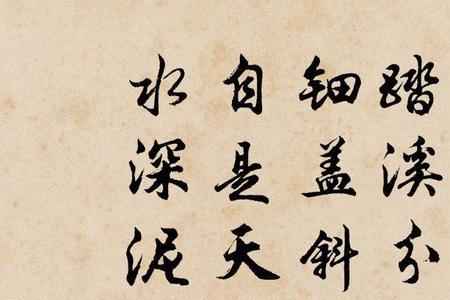 踏溪分
钿盖斜
自是天
水深泥